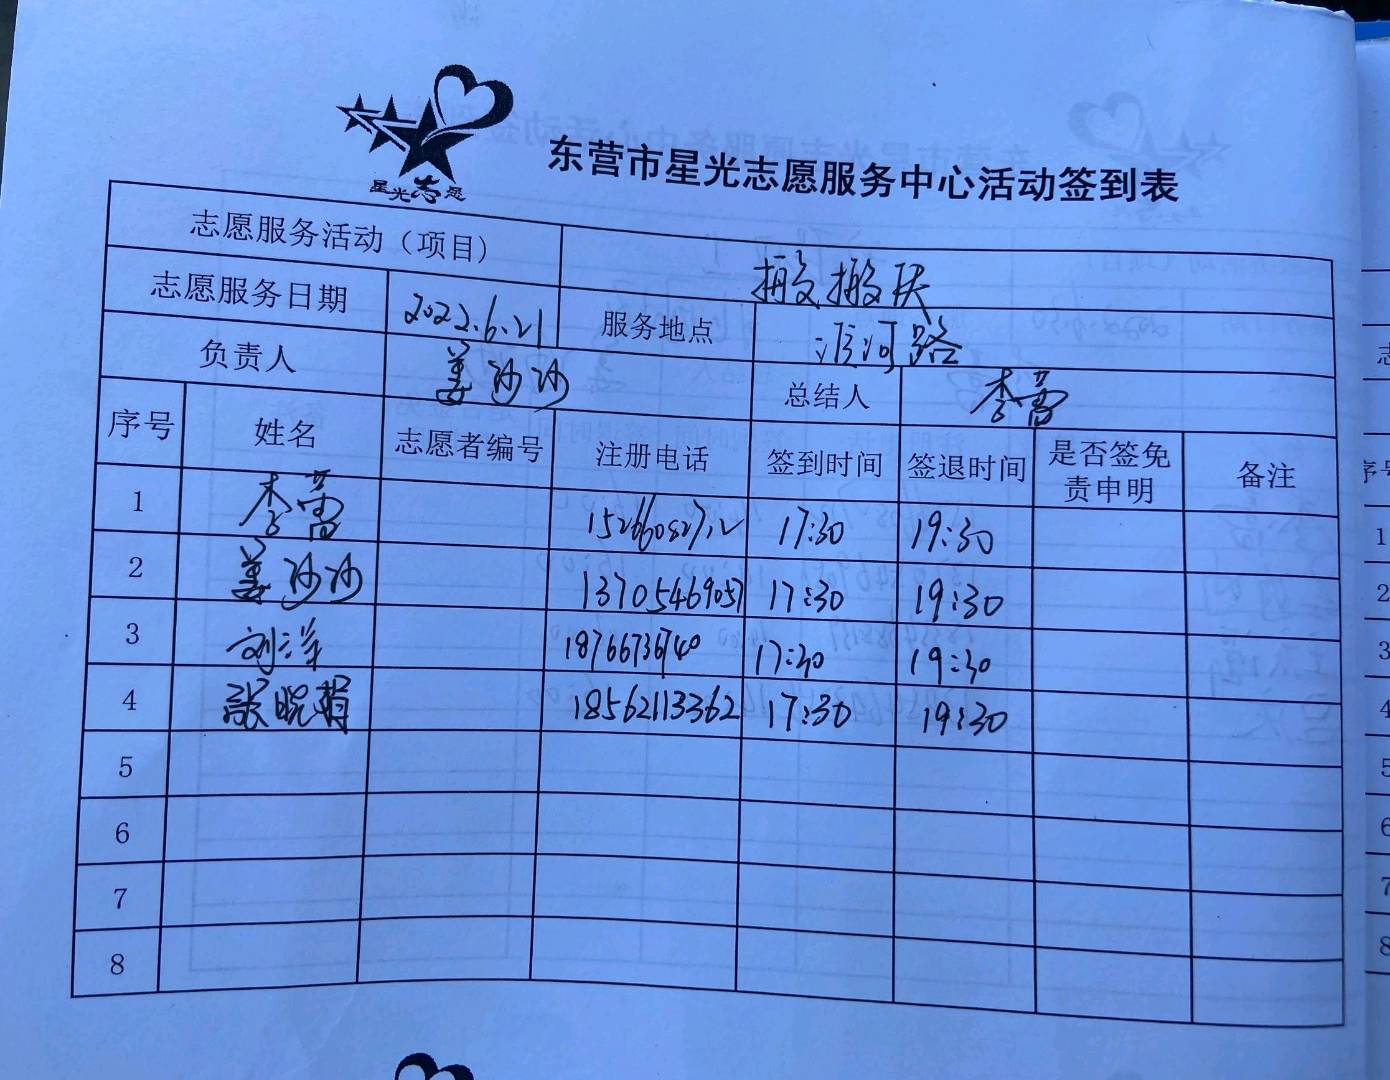 星光志愿
东营市星光志愿服务中心活动签到表
志愿服务活动（项目） 搬搬扶
志愿服务日期 2022.6.21 服务地点 淮河路
负责人 姜沙沙 总结人 李蕾
序号 姓名 志愿者编号 注册电话 签到时间 签退时间 是否签免责申明 备注
1 李蕾 17:30 19:30
2 姜沙沙 13705469057 17:30 19:30
3 刘洋 17:30 19:30
4 张晓娟 18562113362 17:30 19:30
5
6
7
8